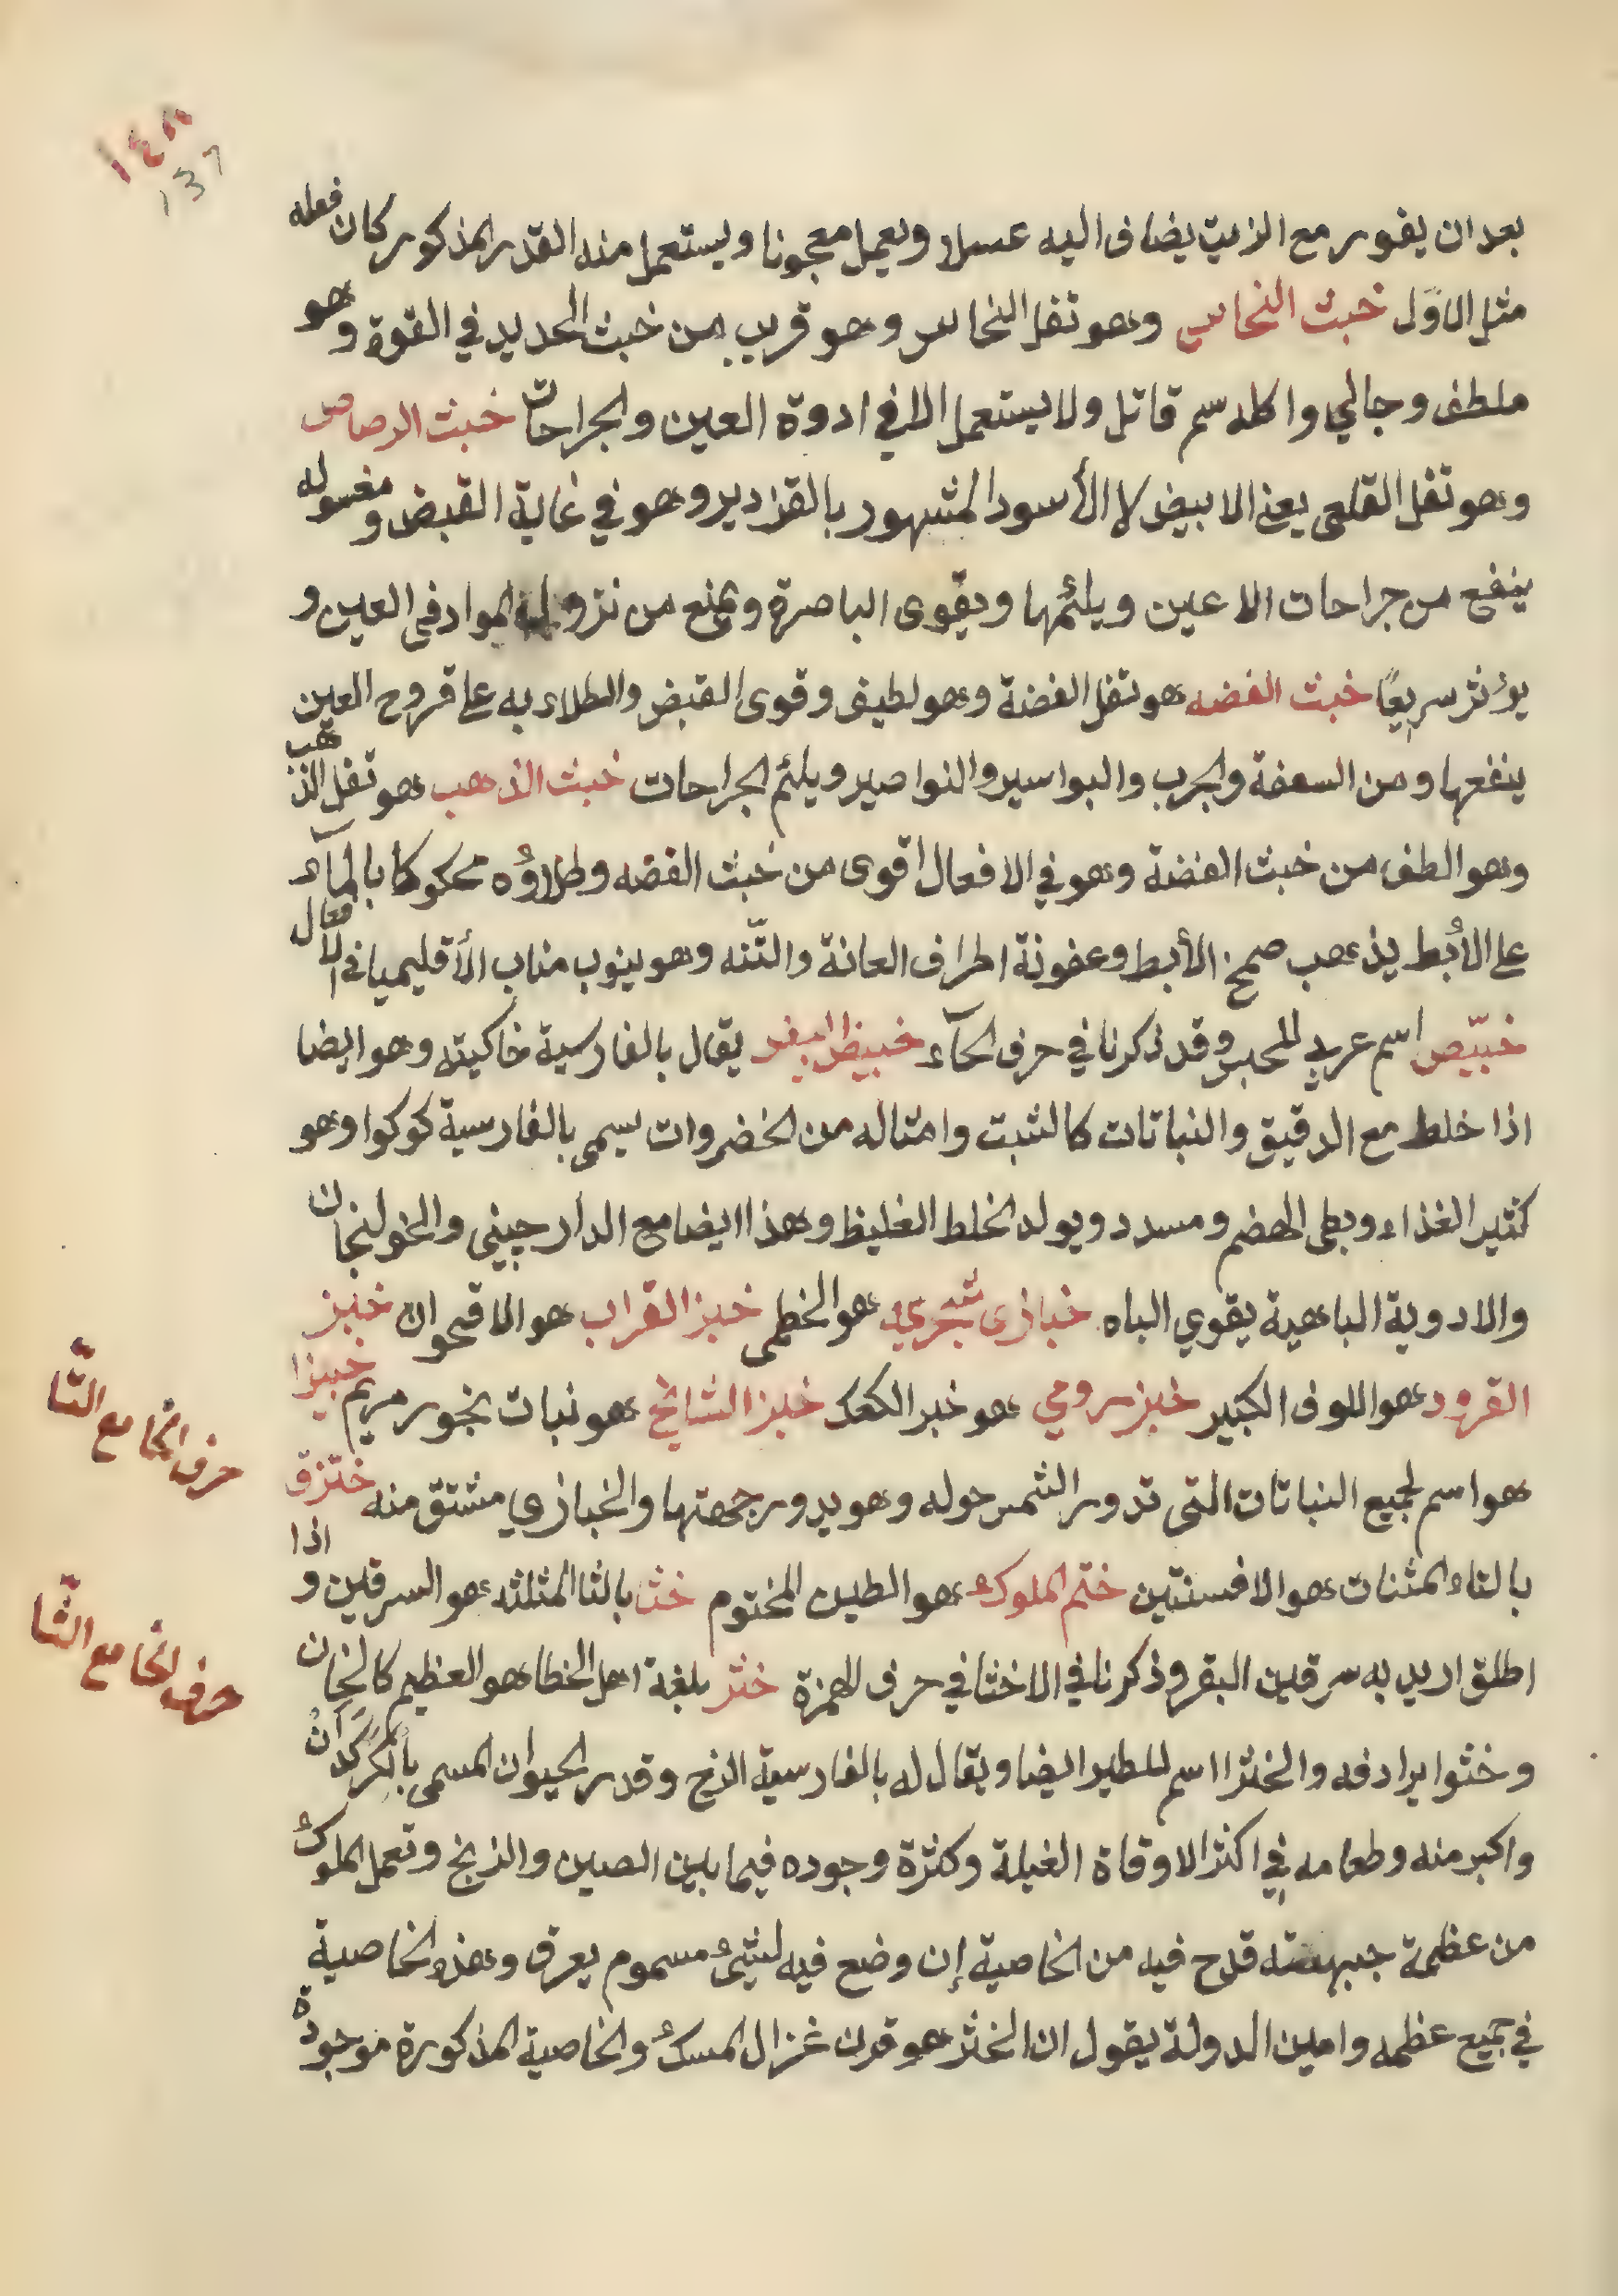 ١٤٨
137
بعد ان يفور مع الزيت يضاف اليه عسلا ويعمل معجونا ويستعمل منه القدر المذكور كان فعله
مثل الاوّل خبث النحاس وهو ثفل النحاس وهو قريب من خبث الحديد في القوة وهو
ملطف وجالي واكله سم قاتل ولا يستعمل الا في ادوة العين والجراحات خبث الرصاص
وهو ثفل القلعى يعنى الابيض لا الأسود المشهور بالقزدير وهو في غاية القبض ومغسوله
ينفع من جراحات الاعين ويلئمها ويقوّى الباصرة ويمنع من نزول المواد فى العين و
يؤثر سريعًا خبث الفضه هو ثفل الفضة وهو لطيف وقوى القبض والطلاء به على قروح العين
ينفعها ومن السعفة والجرب والبواسير والنواصير ويلئم الجراحات خبث الذهب هو ثفل الذهب
وهو الطف من خبث الفضة وهو في الافعال اقوى من خبث الفضه وطلاؤه محكوكا بالمآء
على الأبط يذهب صمخ الأبط وعفونة اطراف العانة والتّنه وهو ينوب مناب الأقليميا فى الافعال
خبّيص اسم عربي للمحبر وقد ذكرنا في حرف الحآء خبيض البيض يقال بالفارسية خاكينه وهو ايضا
اذا خلط مع الدقيق والنباتات كالشبت وامثاله من الخضروات يسمى بالفارسية كوكوا وهو
كثير الغذاء وبطى الهضم ومسدد ويولد الخلط الغليظ وهذا ايضا مع الدارجينى والخولنجان
والادوية الباهية يقوي الباه خبازى شجري هو الخطمى خبز القراب هو الاقحوان خبز
القرود هو اللوف الكبير خبز رومي هو خبز الكعك خبز الشايخ هو نبات بخور مريم خبيزا
هو اسم لجميع النباتات التى تدور الشمس حوله وهو يدور جهتها والخبازي مشتق منه ختزق
بالتاء المثنات هو الافسنتين ختم الملوك هو الطين المختوم خثا بالثا المثلثه هو السرقين و اذا
اطلق اريد به سرقين البقر وذكرنا في الاخثا في حرف الهمزة خثر بلغة اهل الخطا هو العظيم كالخان
وختوا يرادفه والخثرا اسم للطير ايضا ويقال له بالفارسية الذبح وقدر الحيوان المسمى بالكركدان
واكبر منه وطعامه في اكثر الاوقاة الفيلة وكثرة وجوده فيما بين الصين والزنج وتعمل الملوك
من عظمة جبهته قدح فيه من الخاصية إن وضع فيه لشيئ مسموم يعرق وهذه الخاصية
في جميع عظمه وامين الدولة يقول ان الخثر هو قرن غزال المسك والخاصية المذكورة موجودة
حرف الخا مع التّا
حرف الخا مع الثّا